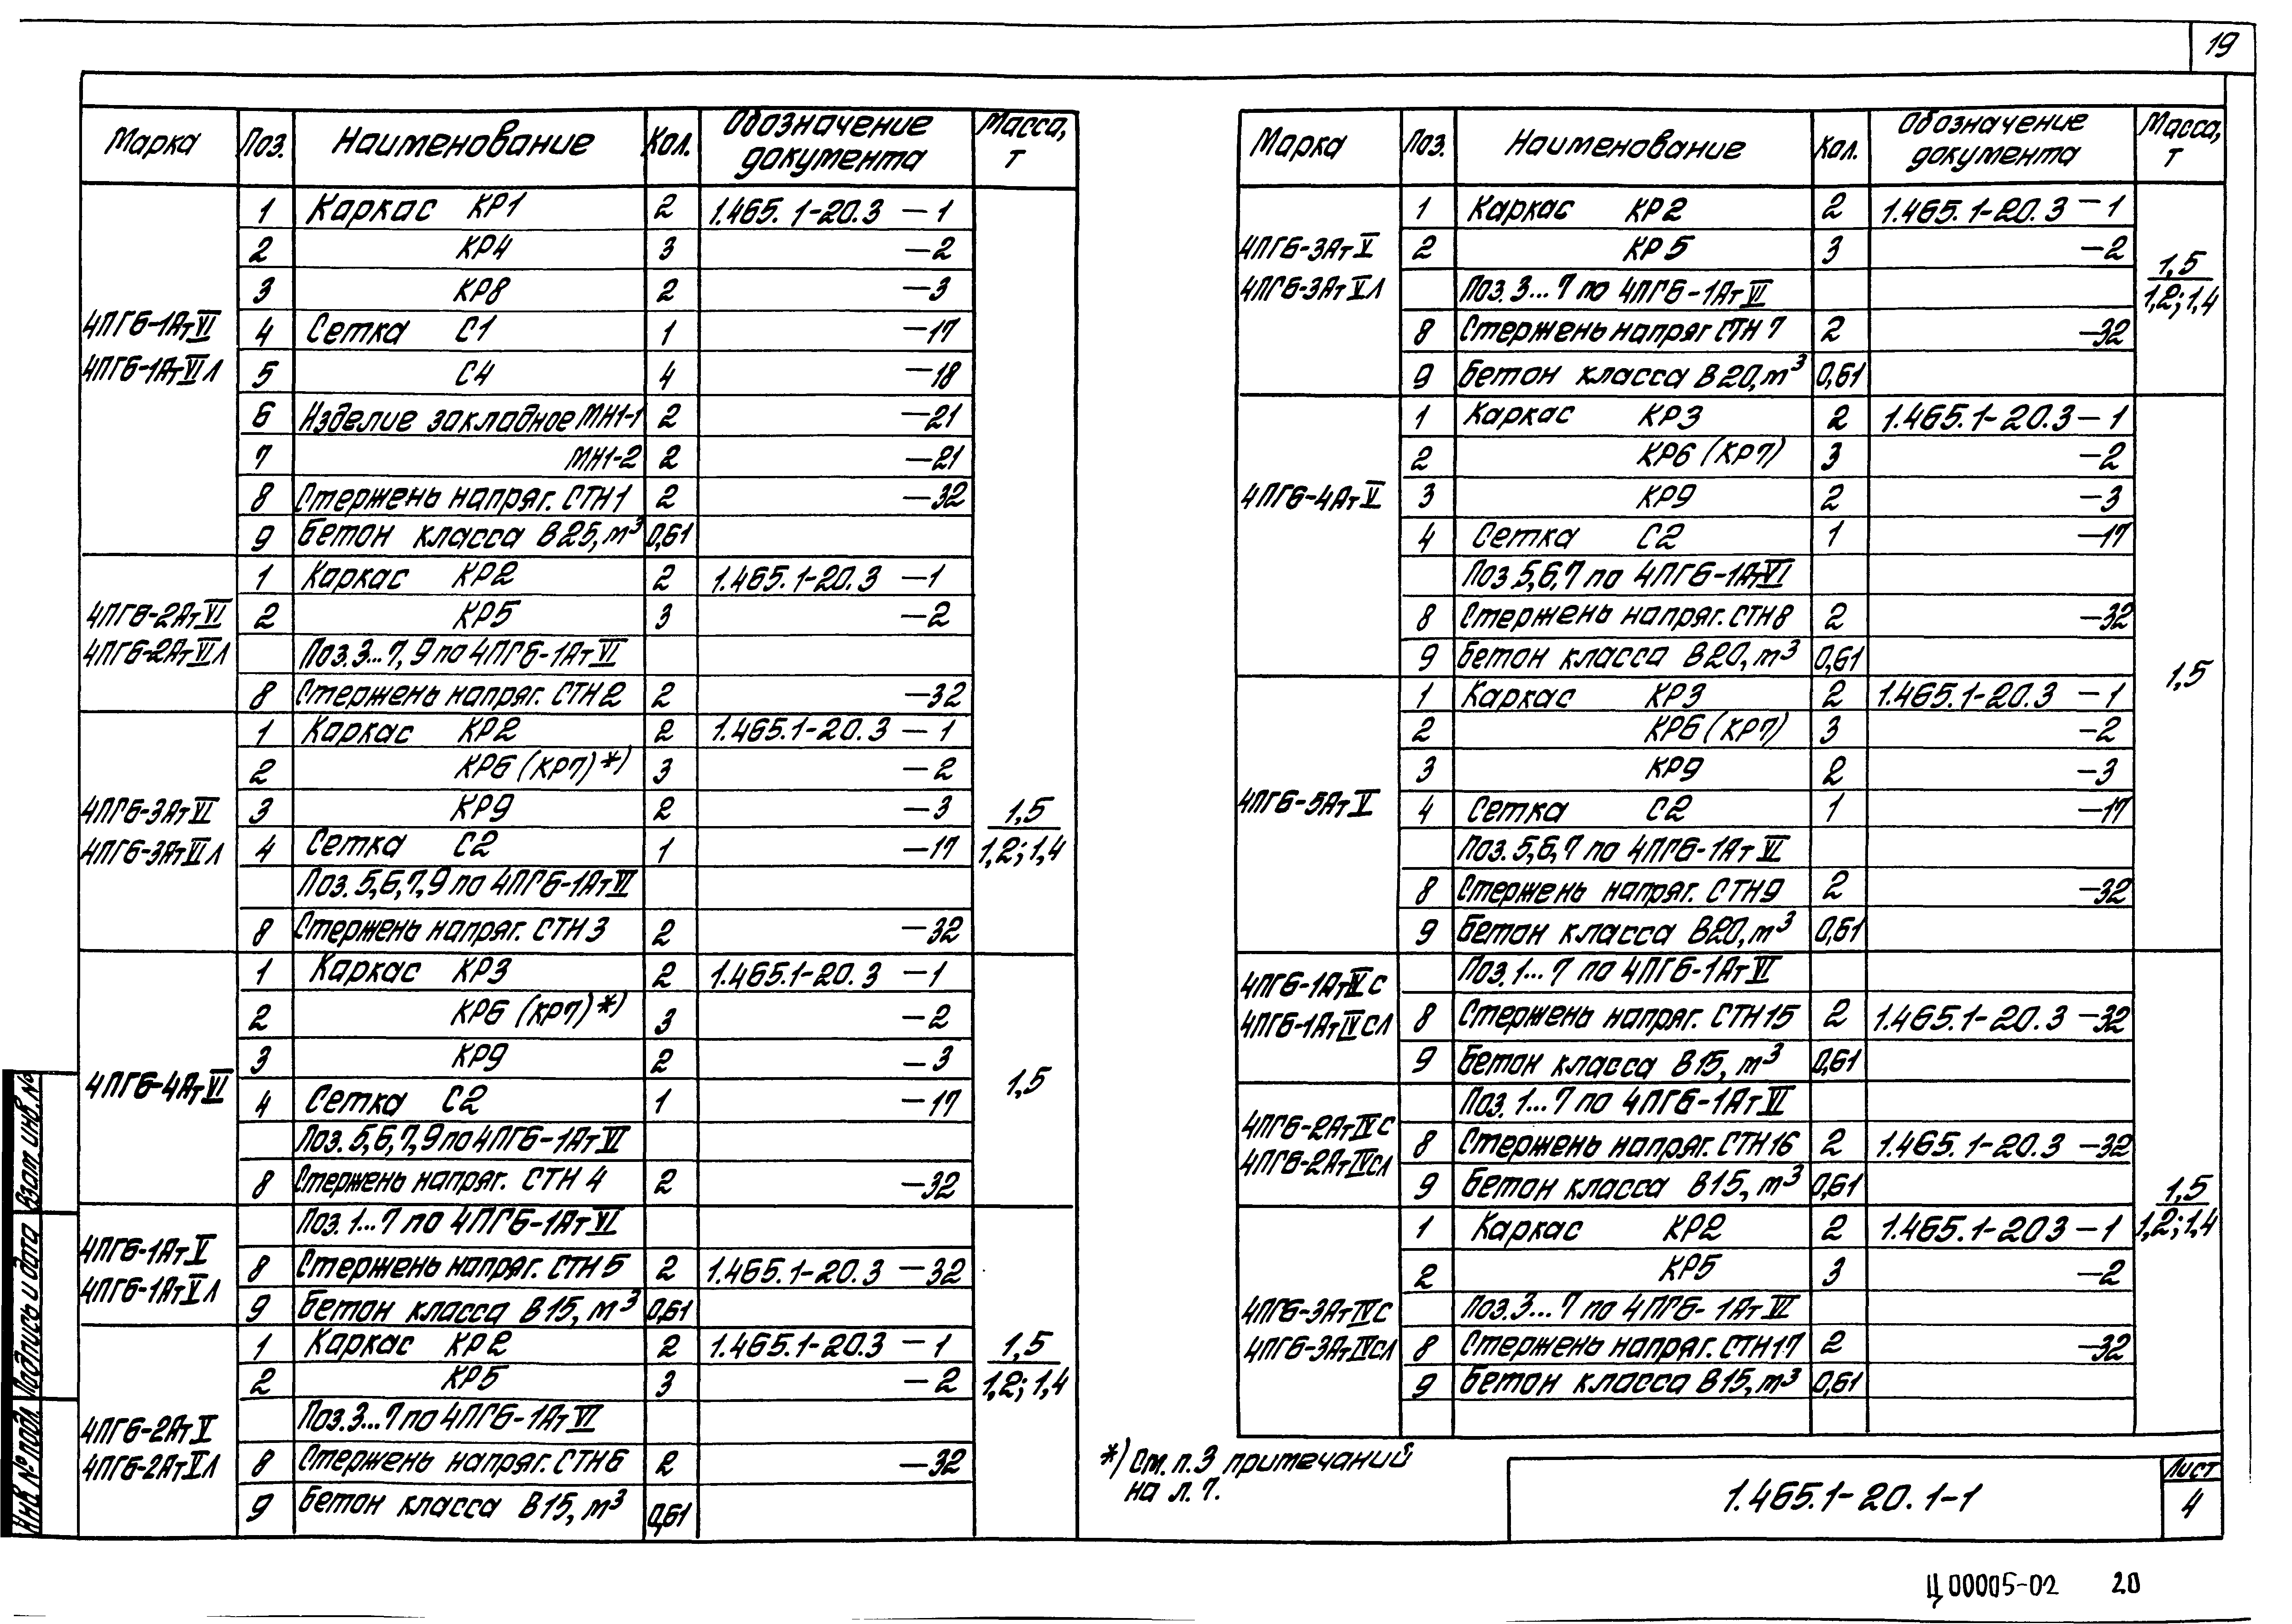 19
Марка Поз. Наименование Кол. Обозначение документа Масса, т
4ПГ6-1АтVI
4ПГ6-1АтVIЛ
1 Каркас КР1 2 1.465.1-20.3 -1
2 КР4 3 -2
3 КР8 2 -3
4 Сетка С1 1 -17
5 С4 4 -18
6 Изделие закладное МН1-1 2 -21
7 МН1-2 2 -21
8 Стержень напряг. СТН1 2 -32
9 Бетон класса В25, м³ 0,61
4ПГ6-2АтVI
4ПГ6-2АтVIЛ
1 Каркас КР2 2 1.465.1-20.3 -1
2 КР5 3 -2
Поз.3...7,9 по 4ПГ6-1АтVI
8 Стержень напряг. СТН2 2 -32
4ПГ6-3АтVI
4ПГ6-3АтVIЛ
1 Каркас КР2 2 1.465.1-20.3 -1
2 КР6 (КР7)*) 3 -2
3 КР9 2 -3
4 Сетка С2 1 -17
Поз.5,6,7,9 по 4ПГ6-1АтVI
8 Стержень напряг. СТН3 2 -32
1,5
1,2; 1,4
4ПГ6-4АтVI
1 Каркас КР3 2 1.465.1-20.3 -1
2 КР6 (КР7)*) 3 -2
3 КР9 2 -3
4 Сетка С2 1 -17
Поз.5,6,7,9 по 4ПГ6-1АтVI
8 Стержень напряг. СТН4 2 -32
1,5
4ПГ6-1АтV
4ПГ6-1АтVЛ
Поз.1...7 по 4ПГ6-1АтVI
8 Стержень напряг. СТН5 2 1.465.1-20.3 -32
9 Бетон класса В15, м³ 0,61
4ПГ6-2АтV
4ПГ6-2АтVЛ
1 Каркас КР2 2 1.465.1-20.3 -1
2 КР5 3 -2
Поз.3...7 по 4ПГ6-1АтVI
8 Стержень напряг. СТН6 2 -32
9 Бетон класса В15, м³ 0,61
1,5
1,2; 1,4
Марка Поз. Наименование Кол. Обозначение документа Масса, т
4ПГ6-3АтV
4ПГ6-3АтVЛ
1 Каркас КР2 2 1.465.1-20.3 -1
2 КР5 3 -2
Поз.3...7 по 4ПГ6-1АтVI
8 Стержень напряг СТН7 2 -32
9 Бетон класса В20, м³ 0,61
1,5
1,2; 1,4
4ПГ6-4АтV
1 Каркас КР3 2 1.465.1-20.3 -1
2 КР6 (КР7) 3 -2
3 КР9 2 -3
4 Сетка С2 1 -17
Поз.5,6,7 по 4ПГ6-1АтVI
8 Стержень напряг. СТН8 2 -32
9 Бетон класса В20, м³ 0,61
1,5
4ПГ6-5АтV
1 Каркас КР3 2 1.465.1-20.3 -1
2 КР6 (КР7) 3 -2
3 КР9 2 -3
4 Сетка С2 1 -17
Поз.5,6,7 по 4ПГ6-1АтVI
8 Стержень напряг. СТН9 2 -32
9 Бетон класса В20, м³ 0,61
4ПГ6-1АтIVС
4ПГ6-1АтIVСЛ
Поз.1...7 по 4ПГ6-1АтVI
8 Стержень напряг. СТН15 2 1.465.1-20.3 -32
9 Бетон класса В15, м³ 0,61
4ПГ6-2АтIVС
4ПГ6-2АтIVСЛ
Поз.1...7 по 4ПГ6-1АтVI
8 Стержень напряг. СТН16 2 1.465.1-20.3 -32
9 Бетон класса В15, м³ 0,61
1,5
1,2; 1,4
4ПГ6-3АтIVС
4ПГ6-3АтIVСЛ
1 Каркас КР2 2 1.465.1-20.3 -1
2 КР5 3 -2
Поз.3...7 по 4ПГ6-1АтVI
8 Стержень напряг. СТН17 2 -32
9 Бетон класса В15, м³ 0,61
*) См. п.3 примечаний
на л.7.
1.465.1-20.1-1
Лист
4
Инв.№ подл. Подпись и дата Взам. инв.№
Ц00005-02 20